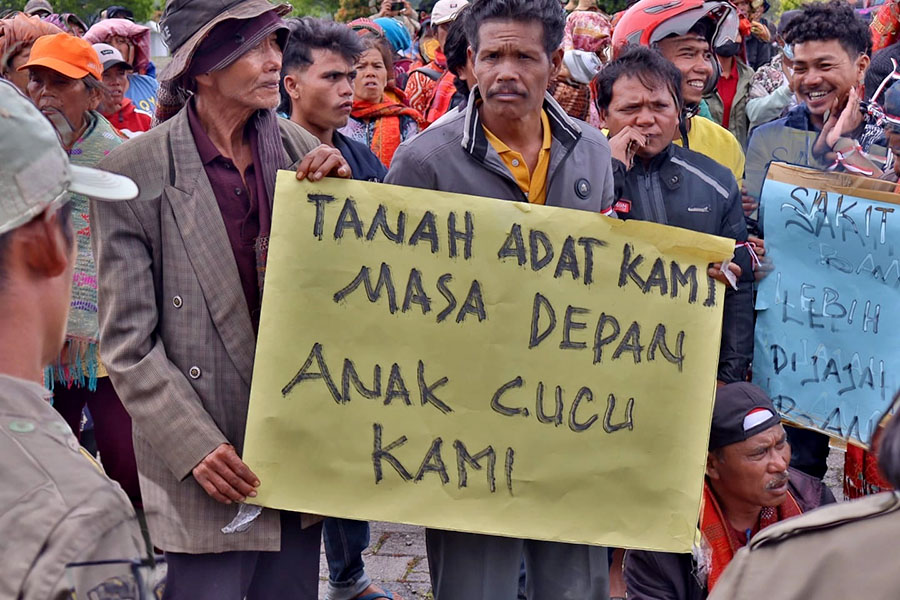 TANAH ADAT KAMI
MASA DEPAN
ANAK CUCU
KAMI
SAKIT
LEBIH
DIJAJAH